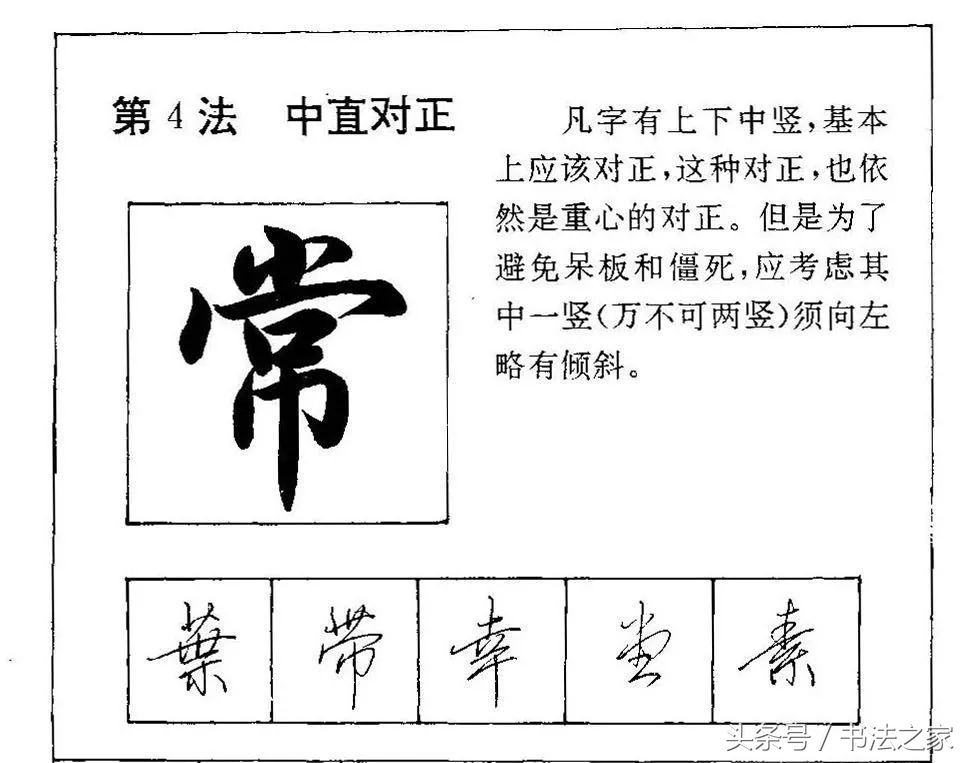 第4法 中直对正
凡字有上下中竖，基本
上应该对正，这种对正，也依
然是重心的对正。但是为了
避免呆板和僵死，应考虑其
中一竖（万不可两竖）须向左
略有倾斜。
常
葉 带 幸 堂 素
头条号／书法之家